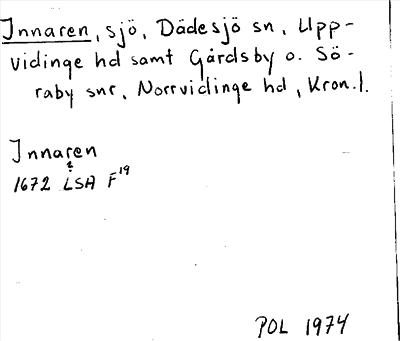 Innaren, sjö, Dädesjö sn, Upp-
vidinge hd samt Gårdsby o. Sö-
raby snr, Norrvidinge hd, Kron.l.
Innaren
1672 LSA F19
POL 1974